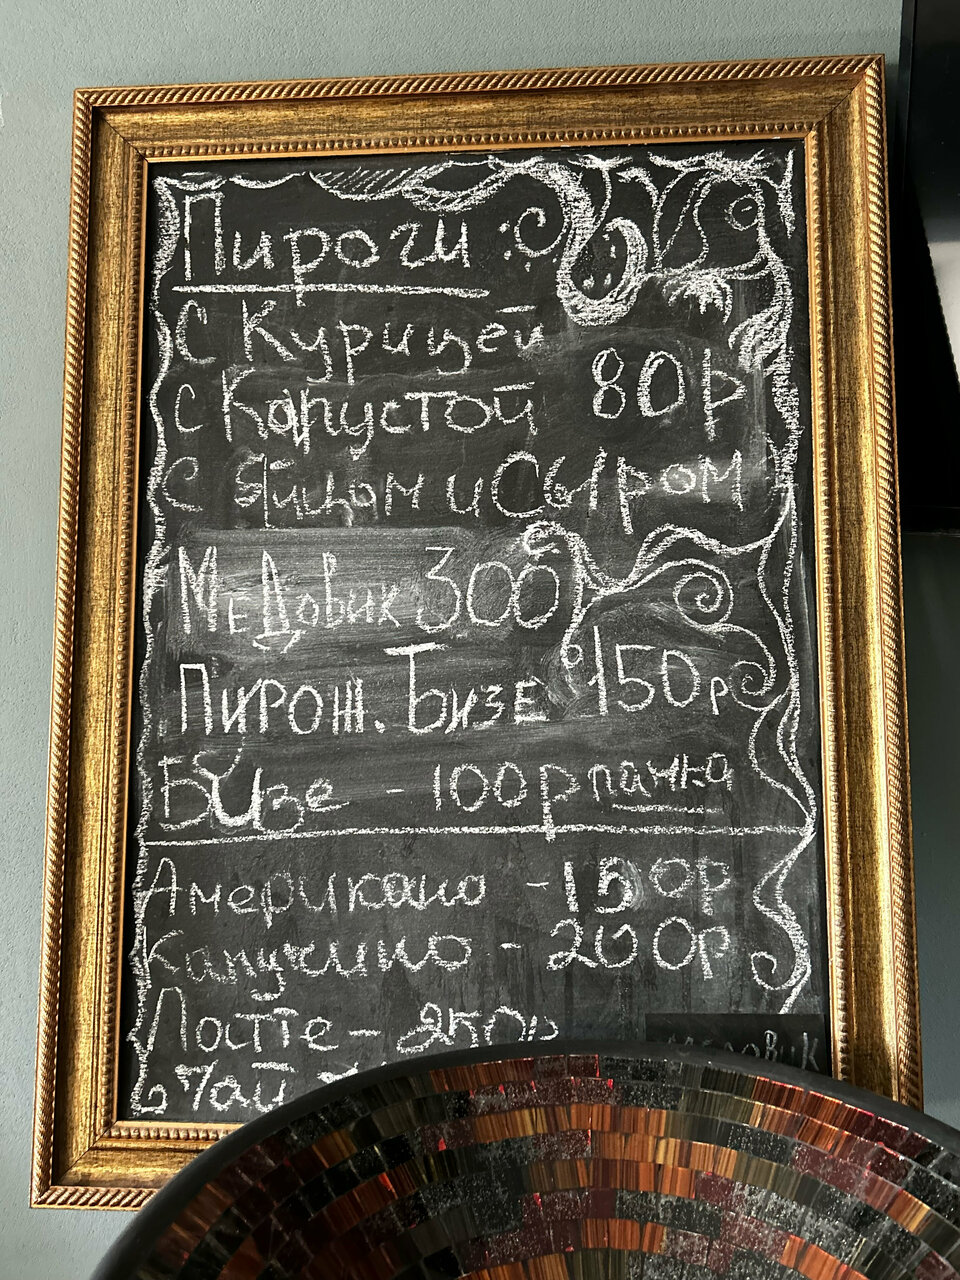 Пироги :
с Курицей
с Капустой 80р
с Яйцом и Сыром
Медовик 300
Пирож. Бизе 150р
Бизе - 100р пачка
Американо - 150р
Капучино - 200р
Латте - 250р
Медовик
Чай